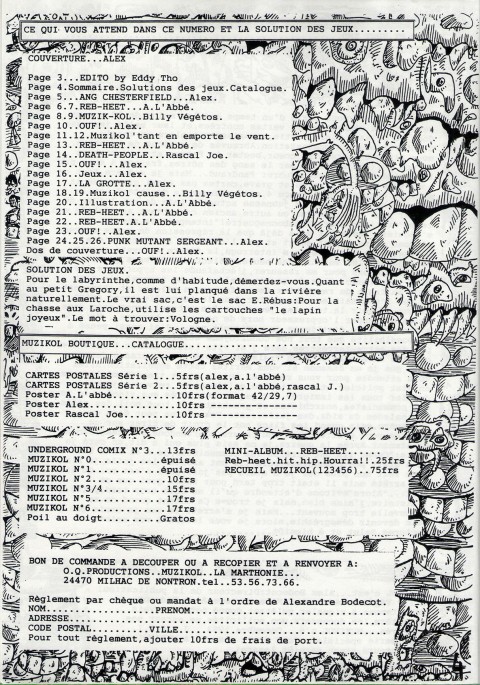 CE QUI VOUS ATTEND DANS CE NUMERO ET LA SOLUTION DES JEUX.........
COUVERTURE...ALEX
Page 3...EDITO by Eddy Tho
Page 4.Sommaire.Solutions des jeux.Catalogue.
Page 5...ANG CHESTERFIELD...Alex.
Page 6.7.REB-HEET...A.L'Abbé.
Page 8.9.MUZIK-KOL..Billy Végétos.
Page 10..OUF!..Alex.
Page 11.12.Muzikol'tant en emporte le vent.
Page 13..REB-HEET...A.L'Abbé.
Page 14..DEATH-PEOPLE...Rascal Joe.
Page 15..OUF!..Alex.
Page 16..Jeux...Alex.
Page 17..LA GROTTE...Alex.
Page 18.19.Muzikol cause...Billy Végetos.
Page 20..Illustration...A.L'Abbé.
Page 21..REB-HEET...A.L'Abbé.
Page 22..REB-HEET.A.L'Abbé.
Page 23..OUF!..Alex.
Page 24.25.26.PUNK MUTANT SERGEANT...Alex.
Dos de couverture...OUF!..Alex.
SOLUTION DES JEUX.
Pour le labyrinthe,comme d'habitude,démerdez-vous.Quant
au petit Gregory,il est lui planqué dans la rivière
naturellement.Le vrai sac,c'est le sac E.Rébus:Pour la
chasse aux Laroche,utilise les cartouches "le lapin
joyeux".Le mot à trouver:Vologne.
MUZIKOL BOUTIQUE...CATALOGUE.......................................
CARTES POSTALES Série 1...5frs(alex,a.l'abbé)
CARTES POSTALES Série 2...5frs(alex,a.l'abbé,rascal J.)
Poster A.L'abbé..........10frs(format 42/29,7)
Poster Alex..............10frs ---------------
Poster Rascal Joe........10frs ---------------
UNDERGROUND COMIX N°3...13frs
MUZIKOL N°0...........épuisé
MUZIKOL N°1...........épuisé
MUZIKOL N°2............10frs
MUZIKOL N°3/4..........15frs
MUZIKOL N°5............17frs
MUZIKOL N°6............17frs
Poil au doigt.........Gratos
MINI-ALBUM...REB-HEET......
Reb-heet.hit.hip.Hourra!!.25frs
RECUEIL MUZIKOL(123456)..75frs
BON DE COMMANDE A DECOUPER OU A RECOPIER ET A RENVOYER A:
O.Q.PRODUCTIONS..MUZIKOL...LA MARTHONIE...
24470 MILHAC DE NONTRON.tel..53.56.73.66.
Règlement par chèque ou mandat à l'ordre de Alexandre Bodecot.
NOM..................PRENOM..............................
ADRESSE..................................................
CODE POSTAL..........VILLE...............................
Pour tout règlement,ajouter 10frs de frais de port.